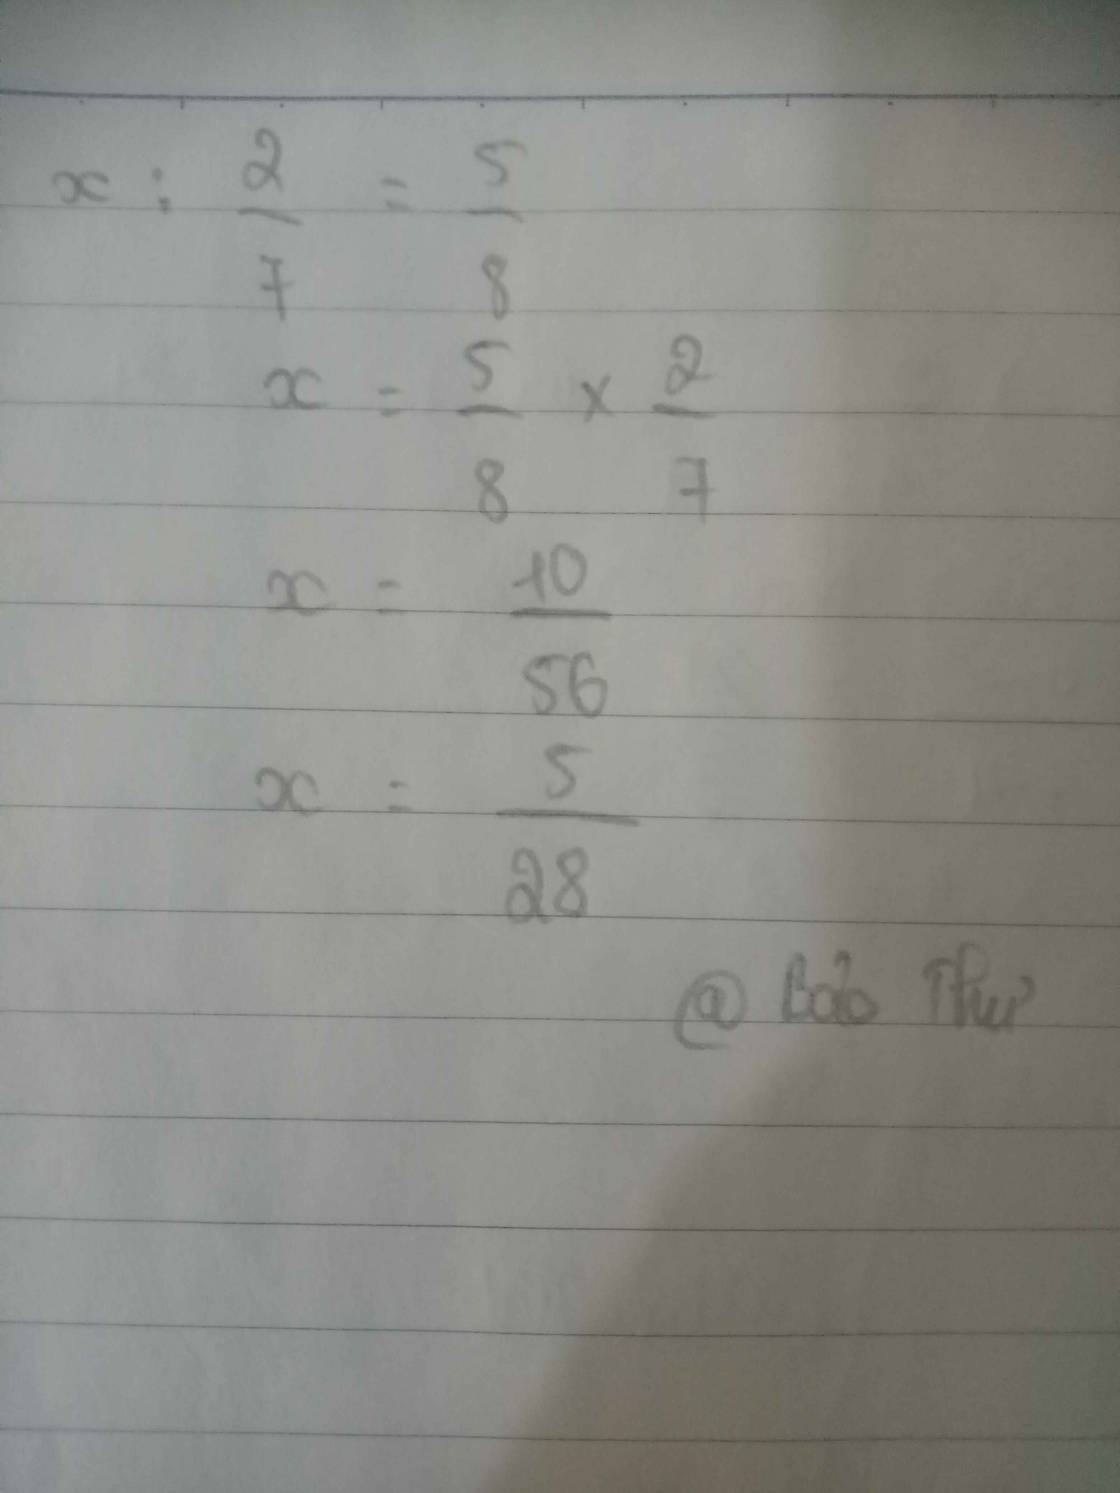 x : 2/7 = 5/8
x = 5/8 × 2/7
x = 10/56
x = 5/28
@ Bảo Thư